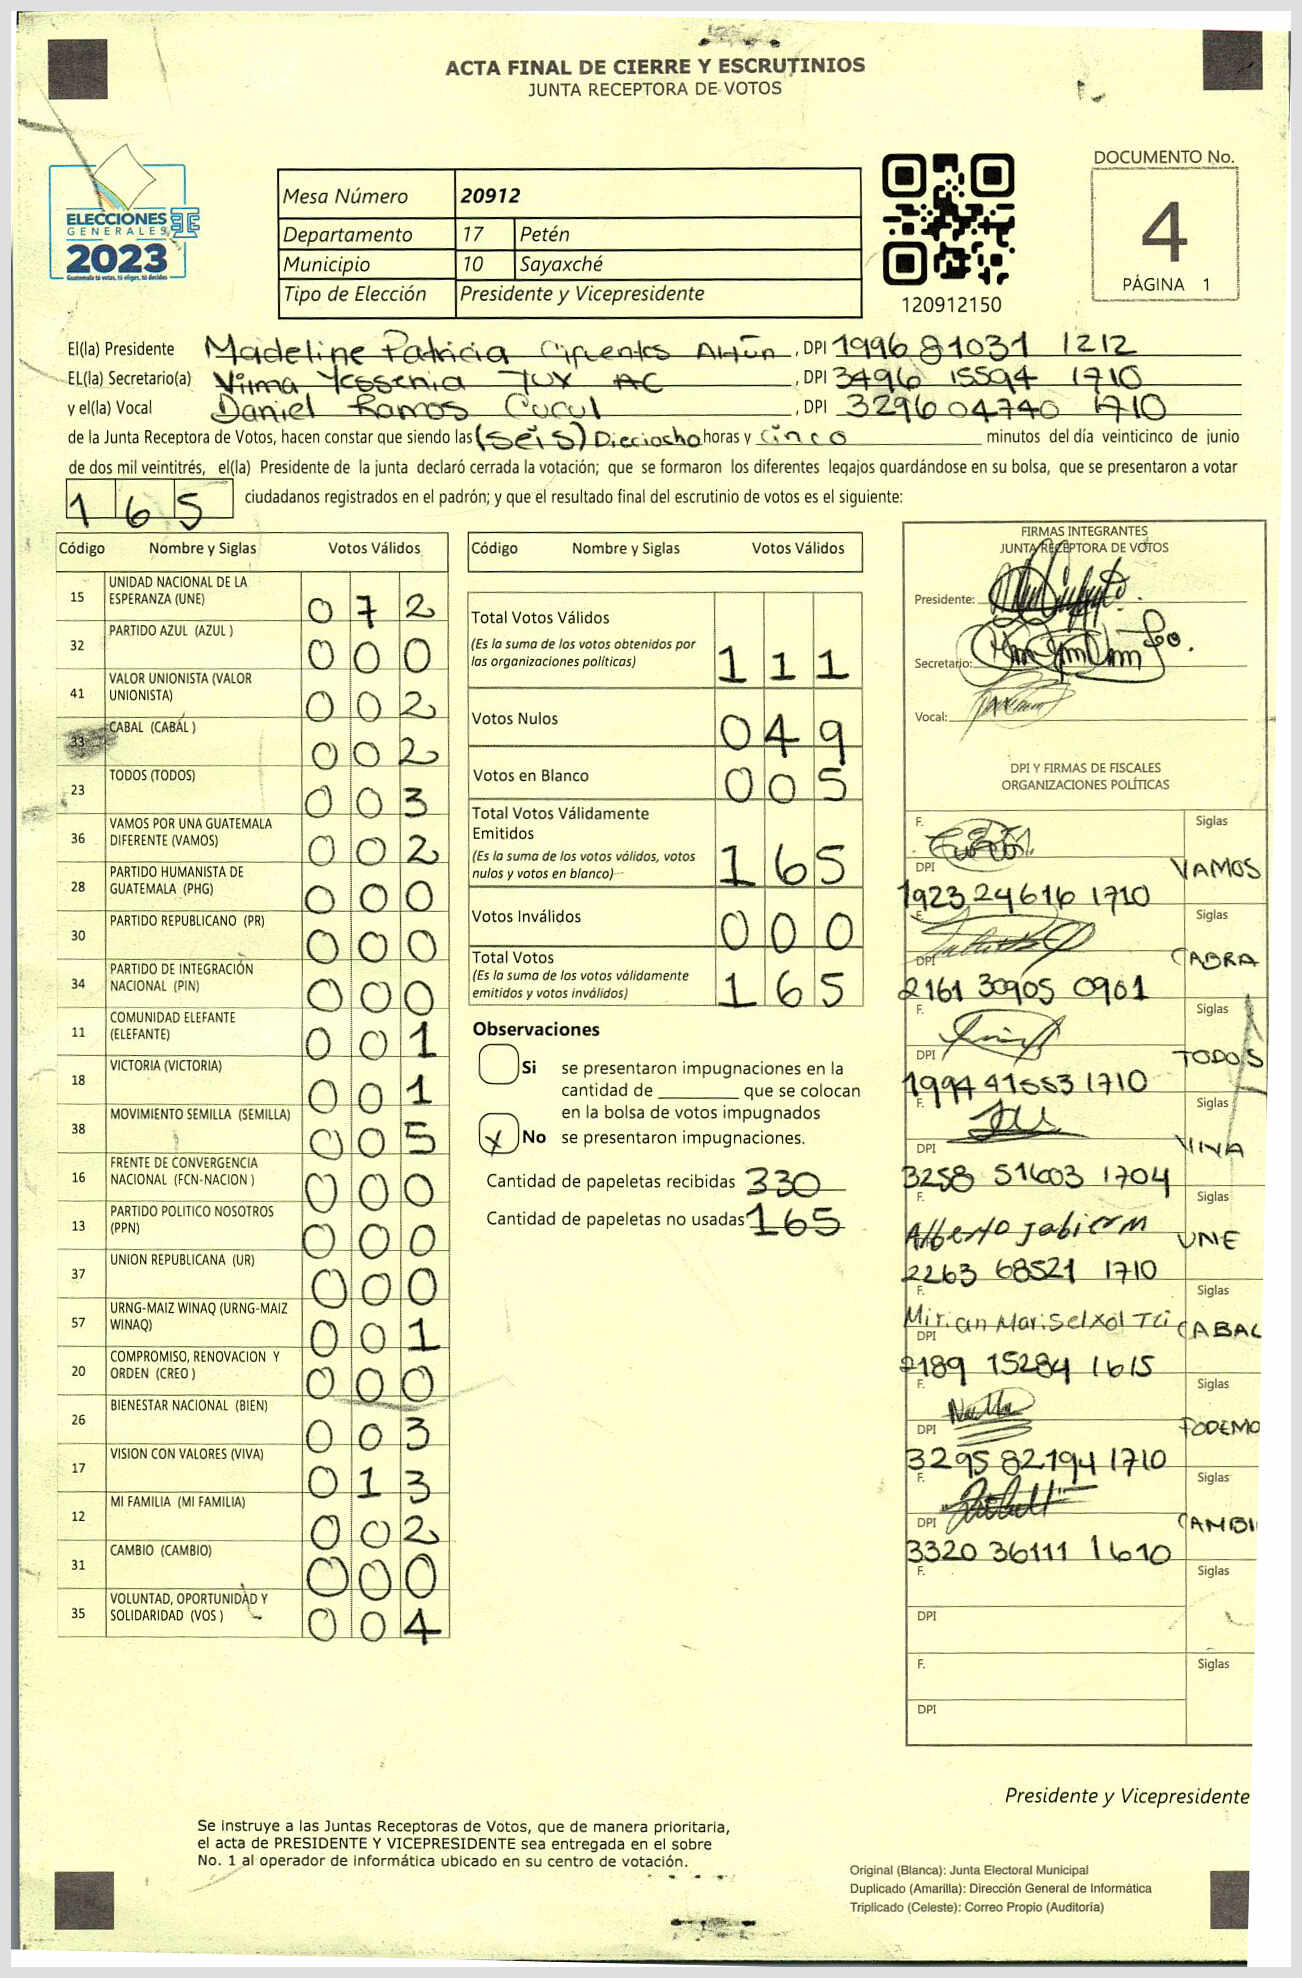 ACTA FINAL DE CIERRE Y ESCRUTINIOS
JUNTA RECEPTORA DE VOTOS
ELECCIONES
GENERALES
2023
Guatemala tú votas, tú eliges, tú decides
Mesa Número 20912
Departamento 17 Petén
Municipio 10 Sayaxché
Tipo de Elección Presidente y Vicepresidente
120912150
DOCUMENTO No.
4
PÁGINA 1
El(la) Presidente Madeline Patricia Cifuentes , DPI 1996 81031 1212
EL(la) Secretario(a) Vilma Yessenia TUX AC , DPI 3496 15594 1710
y el(la) Vocal Daniel Ramos Cucul , DPI 3296 04740 1710
de la Junta Receptora de Votos, hacen constar que siendo las (seis) Dieciocho horas y cinco minutos del día veinticinco de junio
de dos mil veintitrés, el(la) Presidente de la junta declaró cerrada la votación; que se formaron los diferentes legajos quardándose en su bolsa, que se presentaron a votar
1 6 5 ciudadanos registrados en el padrón; y que el resultado final del escrutinio de votos es el siguiente:
Código Nombre y Siglas Votos Válidos
15 UNIDAD NACIONAL DE LA ESPERANZA (UNE) 0 7 2
32 PARTIDO AZUL (AZUL ) 0 0 0
41 VALOR UNIONISTA (VALOR UNIONISTA) 0 0 2
33 CABAL (CABAL ) 0 0 2
23 TODOS (TODOS) 0 0 3
36 VAMOS POR UNA GUATEMALA DIFERENTE (VAMOS) 0 0 2
28 PARTIDO HUMANISTA DE GUATEMALA (PHG) 0 0 0
30 PARTIDO REPUBLICANO (PR) 0 0 0
34 PARTIDO DE INTEGRACIÓN NACIONAL (PIN) 0 0 0
11 COMUNIDAD ELEFANTE (ELEFANTE) 0 0 1
18 VICTORIA (VICTORIA) 0 0 1
38 MOVIMIENTO SEMILLA (SEMILLA) 0 0 5
16 FRENTE DE CONVERGENCIA NACIONAL (FCN-NACION ) 0 0 0
13 PARTIDO POLITICO NOSOTROS (PPN) 0 0 0
37 UNION REPUBLICANA (UR) 0 0 0
57 URNG-MAIZ WINAQ (URNG-MAIZ WINAQ) 0 0 1
20 COMPROMISO, RENOVACION Y ORDEN (CREO ) 0 0 0
26 BIENESTAR NACIONAL (BIEN) 0 0 3
17 VISION CON VALORES (VIVA) 0 1 3
12 MI FAMILIA (MI FAMILIA) 0 0 2
31 CAMBIO (CAMBIO) 0 0 0
35 VOLUNTAD, OPORTUNIDAD Y SOLIDARIDAD (VOS ) 0 0 4
Código Nombre y Siglas Votos Válidos
Total Votos Válidos
(Es la suma de los votos obtenidos por
las organizaciones políticas) 1 1 1
Votos Nulos 0 4 9
Votos en Blanco 0 0 5
Total Votos Válidamente
Emitidos
(Es la suma de los votos válidos, votos
nulos y votos en blanco) 1 6 5
Votos Inválidos 0 0 0
Total Votos
(Es la suma de los votos válidamente
emitidos y votos inválidos) 1 6 5
Observaciones
Si se presentaron impugnaciones en la
cantidad de ________ que se colocan
en la bolsa de votos impugnados
X No se presentaron impugnaciones.
Cantidad de papeletas recibidas 330
Cantidad de papeletas no usadas 165
FIRMAS INTEGRANTES
JUNTA RECEPTORA DE VOTOS
Presidente:
Secretario:
Vocal:
DPI Y FIRMAS DE FISCALES
ORGANIZACIONES POLÍTICAS
F. Siglas
DPI VAMOS
1923 24616 1710
F. Siglas
DPI CABRA
2161 30905 0901
F. Siglas
DPI TODOS
1994 41553 1710
F. Siglas
DPI VIVA
3258 51603 1704
F. Siglas
Alberto UNE
2263 68521 1710
F. Siglas
Mirian CABAL
DPI
2189 15284 1615
F. Siglas
DPI PODEMO
3295 82194 1710
F. Siglas
DPI CAMBI
3320 36111 1610
F. Siglas
DPI
F. Siglas
DPI
Presidente y Vicepresidente
Se instruye a las Juntas Receptoras de Votos, que de manera prioritaria,
el acta de PRESIDENTE Y VICEPRESIDENTE sea entregada en el sobre
No. 1 al operador de informática ubicado en su centro de votación.
Original (Blanca): Junta Electoral Municipal
Duplicado (Amarilla): Dirección General de Informática
Triplicado (Celeste): Correo Propio (Auditoría)